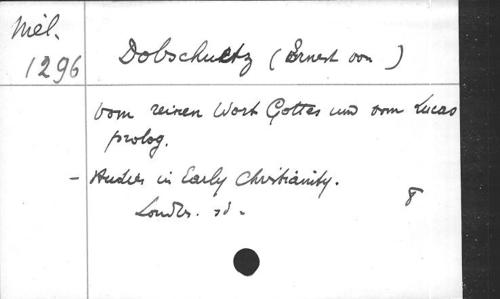 Mél.
1296
Dobschuetz (Ernest von)
Vom reinen Wort Gottes und vom Lucas
prolog.
- Studies in Early Christianity.
London. sd.
8